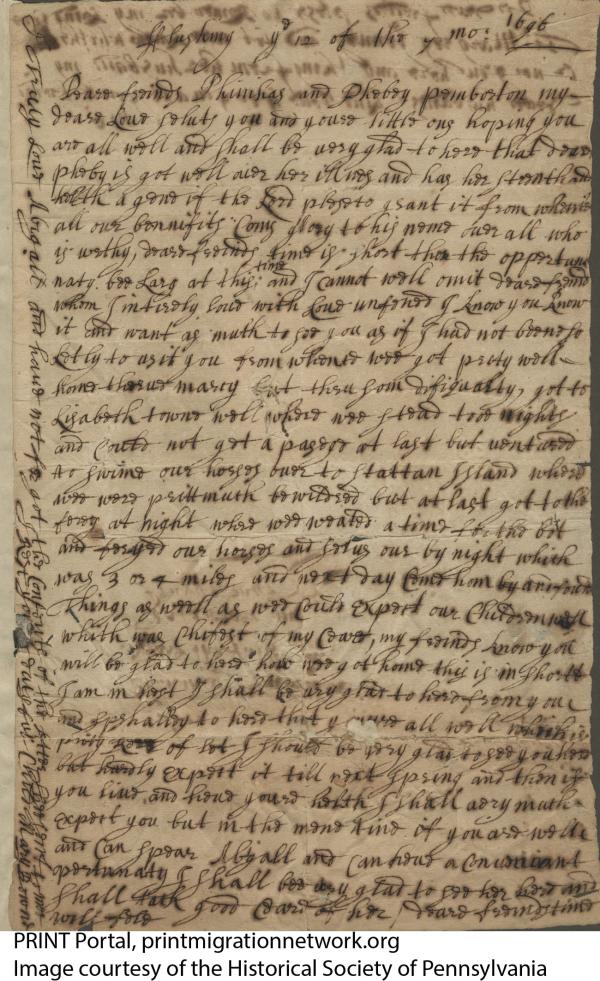 flushing yd 12 of the 7 mo: 1696
Deare freinds Phinihas and Phebey pemberton my
deare Love saluts you and youre little ons hoping you
are all well and shall be uery glad to here that deare
pheby is got well ouer her illnes and has her strenth and
helth a gene if the Lord plese to grant it from whence
all our bennifits Coms glory to his neme ouer all who
is worthy, deare freinds time is short tho the opportun
naty bee Larg at this time and I cannot well omit deare freinds
whom I intirely loue with Loue unfened I know you know
it and want as muth to see you as if I had not beene so
letly to uisit you from whence wee got prety well
home threw marcy but threw som difiqualty, got to
Lisabeth towne well where wee steed two nights
and Could not get a pasege at last but ventured
to swime our horses ouer to Stattan Island where
wee were prittmuth bewildred but at last got to the
ferey at night where wee weated a time for the bot
and feryed our horses and selus our by night which
was 3 or 4 miles and next day Came hom by and found
things as well as wee Could expect our Children well
whith was Chifest of my Ceare, my freinds know you
will be glad to here how wee got home this is in short
I am in hest I shall be uery glad to here from you
and spshalley to here that you are all well which is
of but I should be uery glad to see you here
but hardly expect it till next spring and then if
you liue and heue youre helth I shall uery muth
expect you but in the mene time if you are well
and Can spear Abigall and Can heue a Conueniant
pertunaty I shall bee uery glad to see her here and
shall take good Ceare of her, deare freinds time
will
I truly Loue Abigall and haue not forgot the
PRINT Portal, printmigrationnetwork.org
Image courtesy of the Historical Society of Pennsylvania